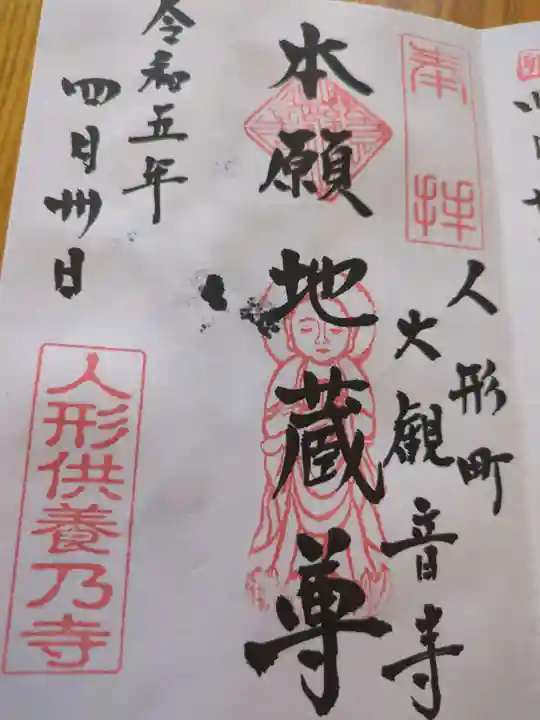 奉拝
人形町
大觀音寺
本願地蔵尊
令和五年
四月卅日
人形供養乃寺